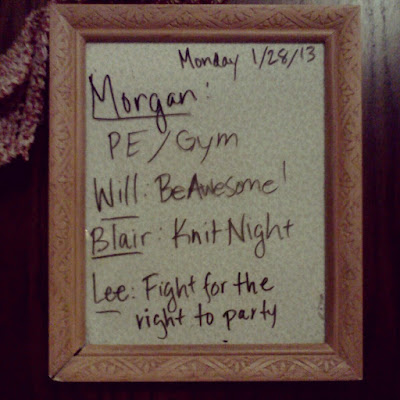 Monday 1/28/13
Morgan:
PE/Gym
Will: Be Awesome!
Blair: Knit Night
Lee: Fight for the
right to party